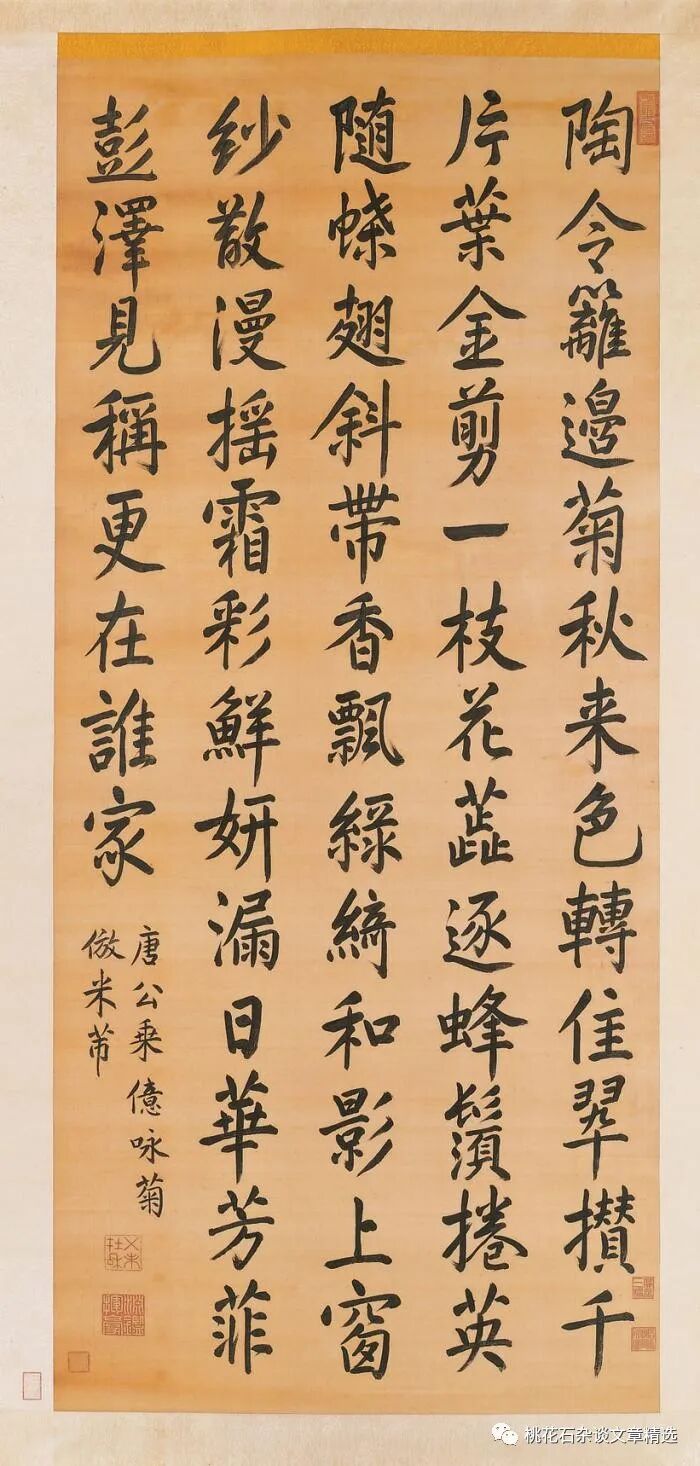 陶令籬邊菊秋来色轉佳翠攢千
片葉金剪一枝花蕋逐蜂鬚捲英
随蝶翅斜帶香飄緑綺和影上窗
紗散漫摇霜彩鮮妍漏日華芳菲
彭澤見稱更在誰家
唐公乗億咏菊
倣米芾
桃花石杂谈文章精选